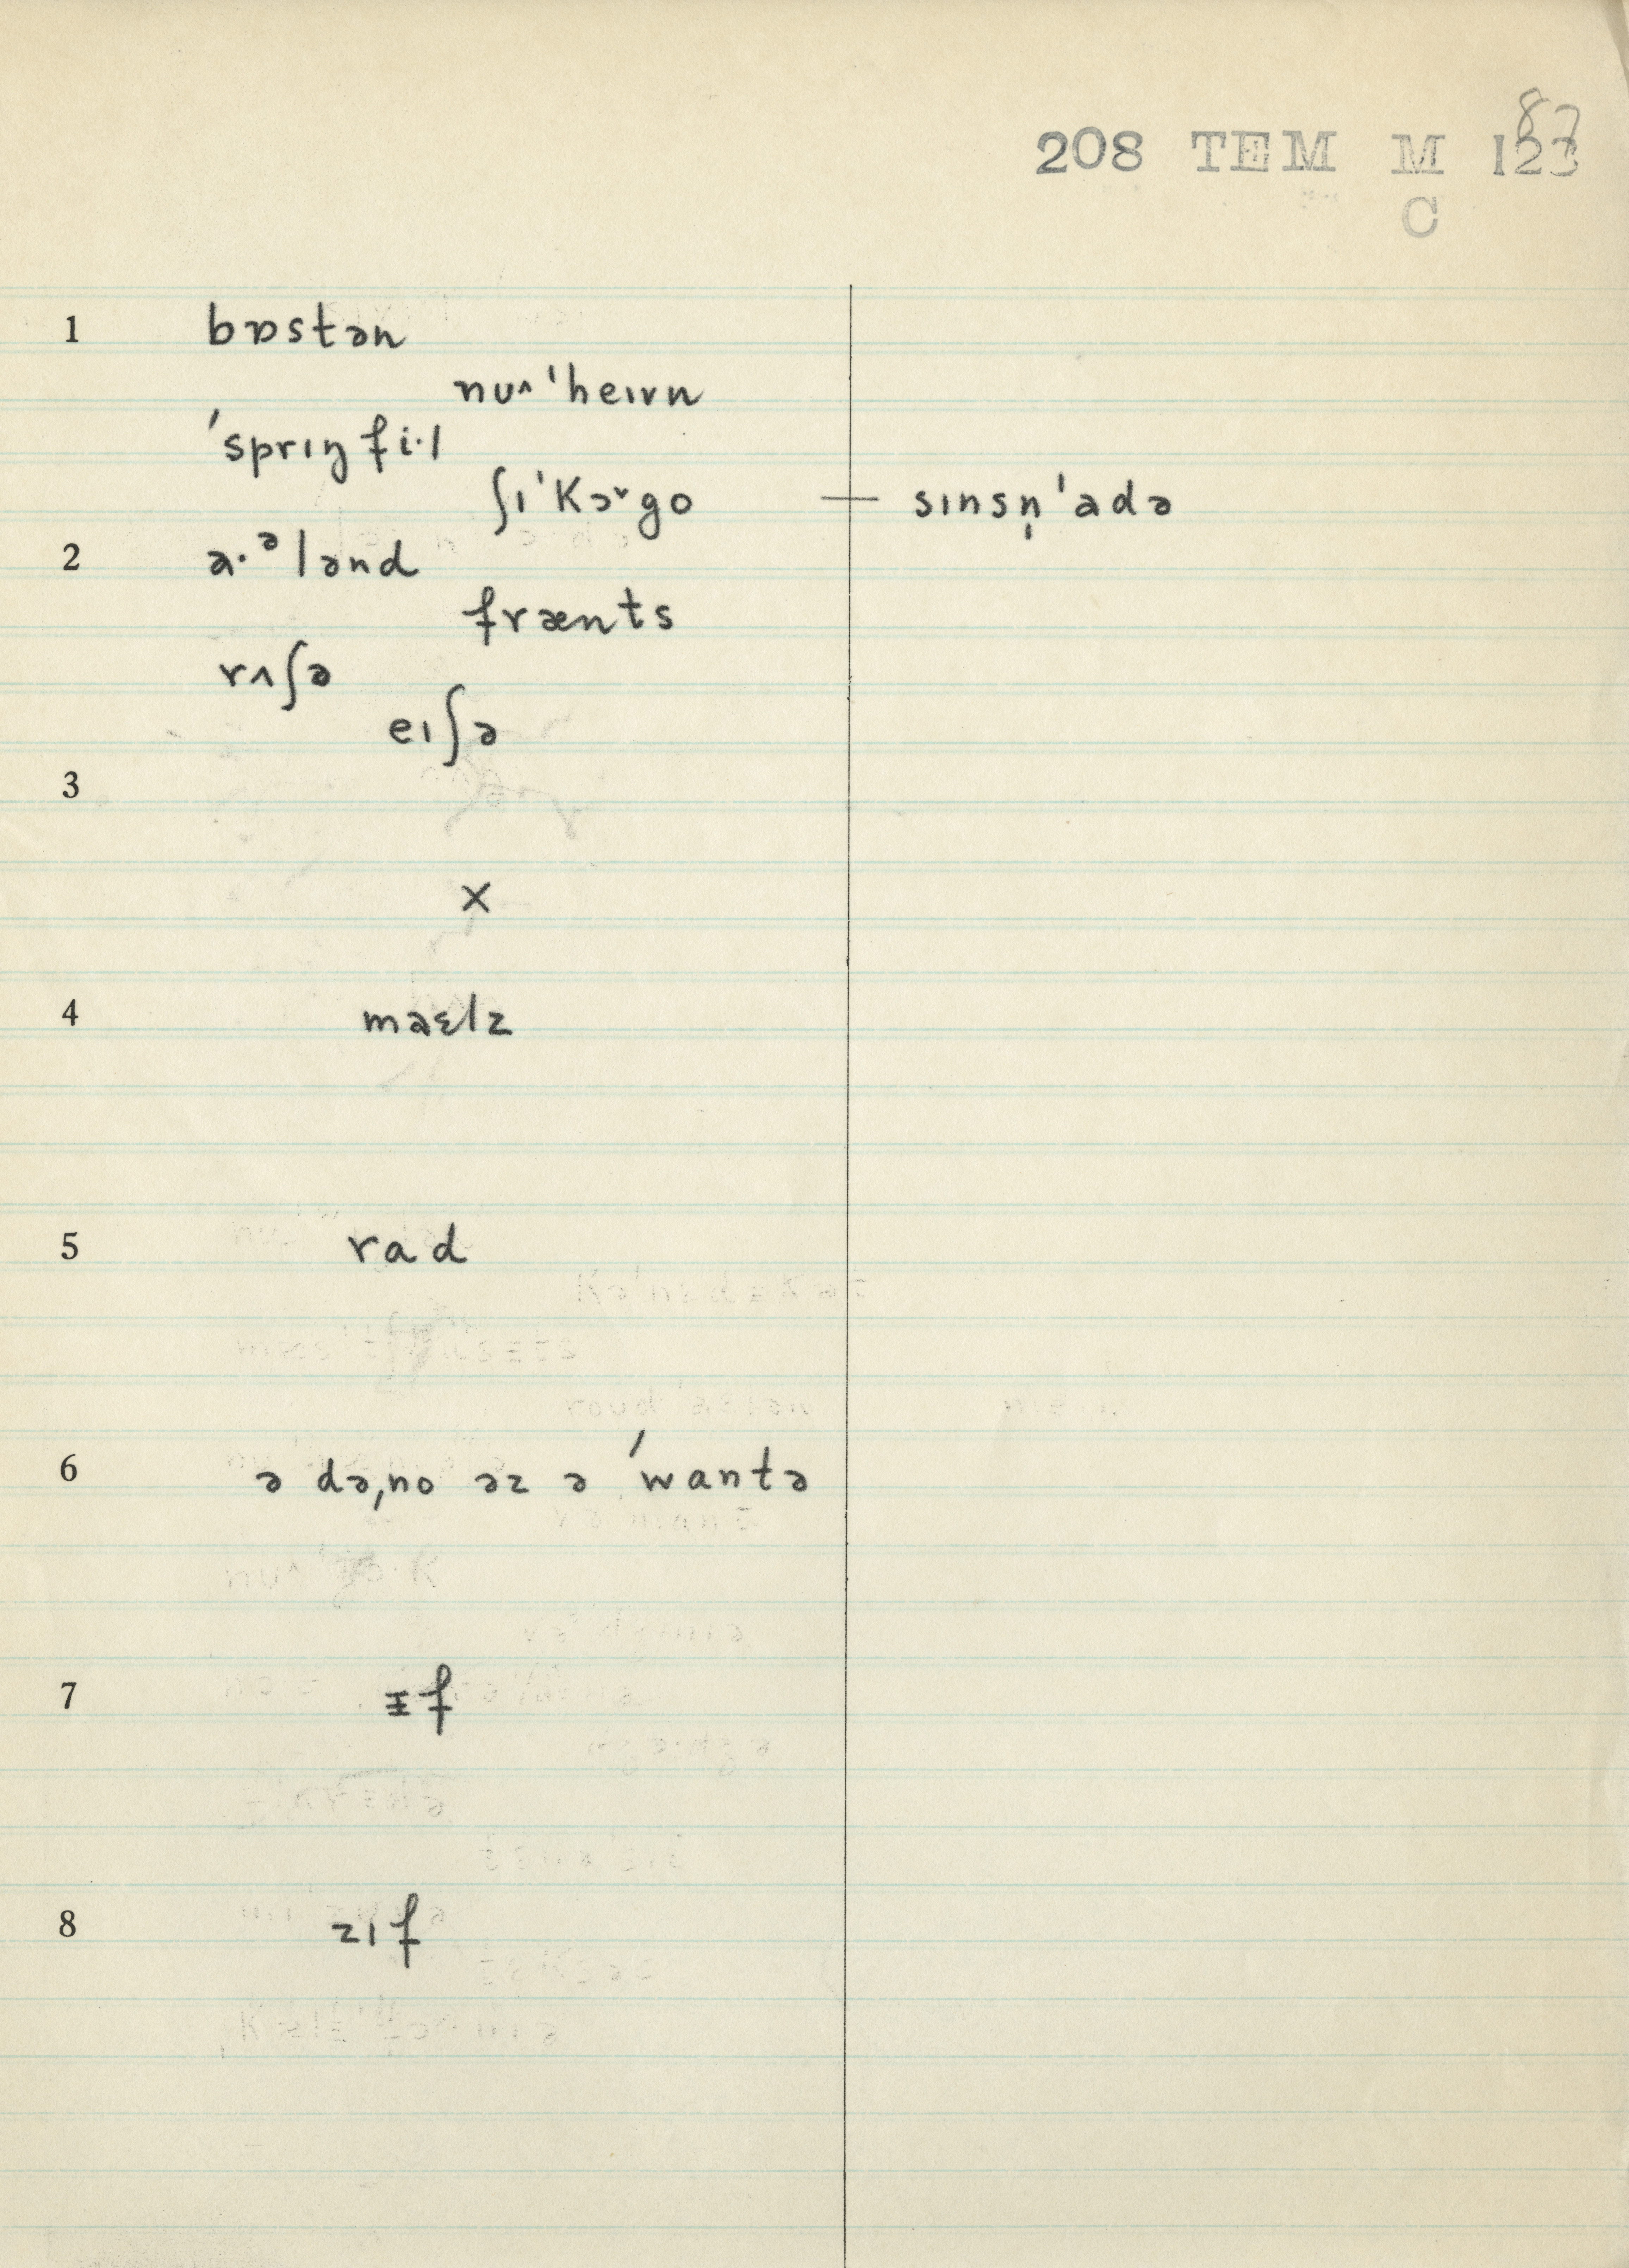 87
208 TEM M 123
C
1 bɒstən
nu^ 'heɪvn
'sprɪŋfi·l
ʃɪ'kɔ˞go — sɪnsn̩'adə
2 a·ᵊlənd
frænts
rʌʃə
eɪʃə
3
×
4 maɛlz
5 rad
6 ə də,no əz ə 'wantə
7 ɪf
8 zɪf